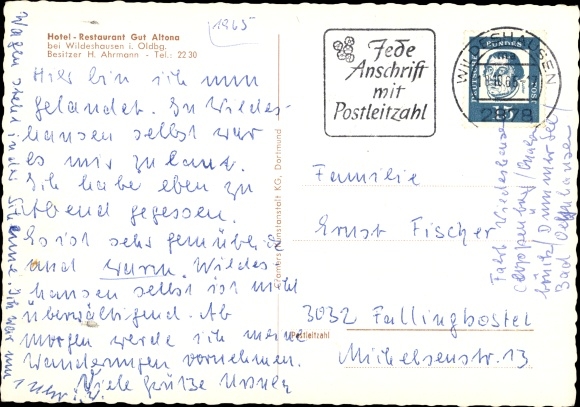 1965
Hotel-Restaurant Gut Altona
bei Wildeshausen i. Oldbg.
Besitzer H. Ahrmann - Tel.: 2230
Hier bin ich nun
gelandet. In Wildes-
hausen selbst war
es mir zu
Ich habe eben zu
Abend gegessen.
Es ist sehr gemütlich
und warm. Wildes
hausen selbst ist nicht
überwältigend. Ab
morgen werde ich meine
Wanderungen vornehmen.
Viele Grüße
Wagen steht in der
Ich war um
1 Uhr
Cramers Kunstanstalt KG, Dortmund
Jede
Anschrift
mit
Postleitzahl
WILDESHAUSEN
2878
DEUTSCHE BUNDESPOST
15
Familie
Ernst Fischer
3032 Fallingbostel
Postleitzahl
Michelsenstr. 13
Fahrt Wildeshausen
Cloppenburg/
Dümmer See/
Bad Oeynhausen